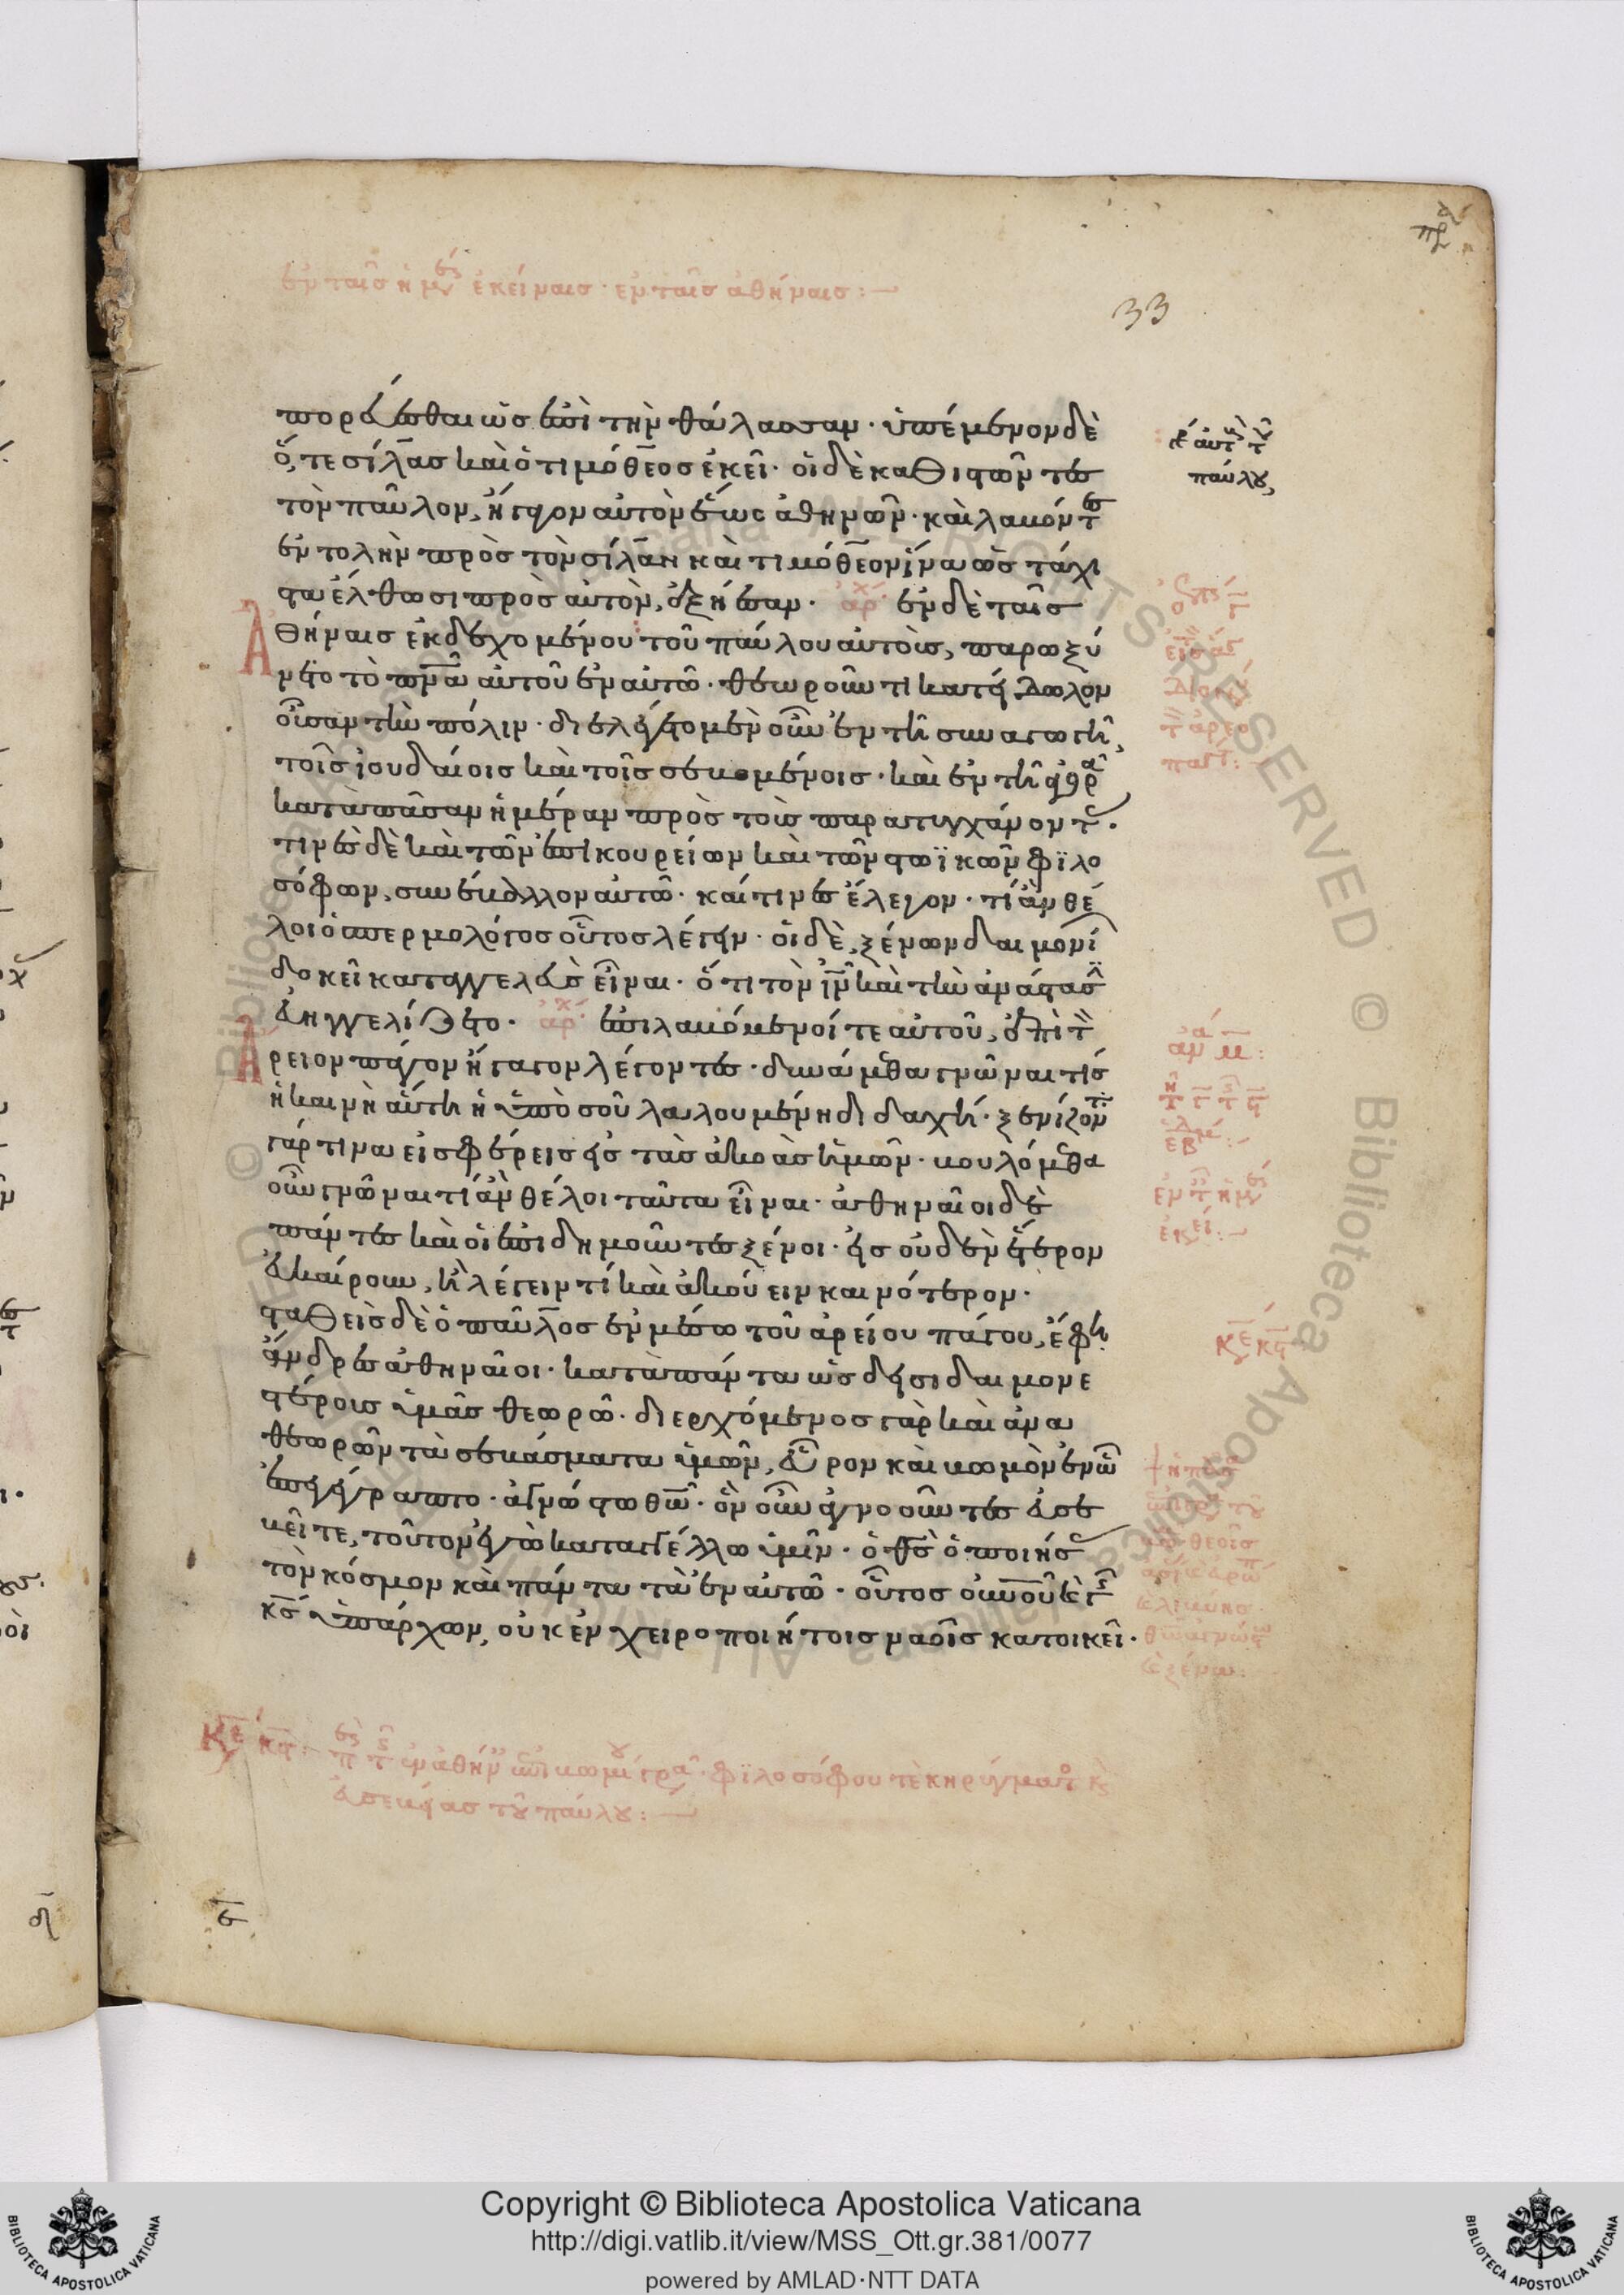 ἐν ταῖς ἡμ ἐκείναις · ἐν ταῖς ἀθήναις :—
33
πορεύεσθαι ὡς ἐπὶ τὴν θάλασσαν · ὑπέμενον δὲ
ὅ, τε σίλας καὶ ὁ τιμόθεος ἐκεῖ · οἱ δὲ καθιστῶντες
τὸν παῦλον, ἤγαγον αὐτὸν ἕως ἀθηνῶν · καὶ λαβόντες
ἐντολὴν πρὸς τὸν σίλαν καὶ τιμόθεον ἵνα ὡς τάχι
στα ἔλθωσι πρὸς αὐτὸν, ἐξήεσαν · ἀρχ ἐν δὲ ταῖς
Ἀθήναις ἐκδεχομένου τοῦ παύλου αὐτοὺς, παρωξύ
νετο τὸ πνᾶ αὐτοῦ ἐν αὐτῶ · θεωροῦντι κατείδωλον
οὖσαν τὴν πόλιν · διελέγετο μὲν οὖν ἐν τῆ συναγωγῆ
τοῖς ἰουδαίοις καὶ τοῖς σεβομένοις · καὶ ἐν τῆ ἀγορᾶ
κατὰ πᾶσαν ἡμέραν πρὸς τοὺς παρατυγχάνοντας ·
τινὲς δὲ καὶ τῶν ἐπικουρείων καὶ τῶν στωϊκῶν φϊλο
σόφων, συνέβαλλον αὐτῶ · καί τινες ἔλεγον · τί ἂν θέ
λοι ὁ σπερμολόγος οὗτος λέγειν · οἱ δὲ, ξένων δαιμονί
δοκεῖ καταγγελεὺς εἶναι · ὅτι τὸν ἰν καὶ τὴν ἀνάστασ
εὐηγγελίζετο · ἀρχ ἐπιλαβόμενοί τε αὐτοῦ, ἐπὶ τὸν
Ἄρειον πάγον ἤγαγον λέγοντες · δυνάμεθα γνῶναι τίς
ἡ καινὴ αὕτη ἡ ὑπὸ σοῦ λαλουμένη διδαχή · ξενίζοντ
γάρ τινα εἰσφέρεις εἰς τὰς ἀκοὰς ἡμῶν · βουλόμεθα
οὖν γνῶναι τί ἂν θέλοι ταῦτα εἶναι · ἀθηναῖοι δὲ
πάντες καὶ οἱ ἐπιδημοῦντες ξένοι · εἰς οὐδὲν ἕτερον
εὐκαίρουν, ἢ λέγειν τί καὶ ἀκούειν καινότερον ·
σταθεὶς δὲ ὁ παῦλος ἐν μέσω τοῦ ἀρείου πάγου, ἔφη
ἄνδρες ἀθηναῖοι · κατὰ πάντα ὡς δεισιδαιμονε
στέρους ὑμᾶς θεωρῶ · διερχόμενος γὰρ καὶ ἀνα
θεωρῶν τὰ σεβάσματα ὑμῶν, εὗρον καὶ βωμὸν ἐν ὧ
ἐπεγέγραπτο · ἀγνώστω θῶ · ὃν οὖν ἀγνοοῦντες εὐσε
βεῖτε, τοῦτον ἐγὼ καταγγέλλω ὑμῖν · ὁ θς ὁ ποιήσας
τὸν κόσμον καὶ πάντα τὰ ἐν αὐτῶ · οὗτος οὐνοῦ καὶ γῆς
κς ὑπάρχων, οὐκ ἐν χειροποιήτοις ναοῖς κατοικεῖ ·
παύλου,
ἀσεβείας τοῦ παύλου :—
Copyright © Biblioteca Apostolica Vaticana
http://digi.vatlib.it/view/MSS_Ott.gr.381/0077
powered by AMLAD·NTT DATA
BIBLIOTECA APOSTOLICA VATICANA
BIBLIOTECA APOSTOLICA VATICANA